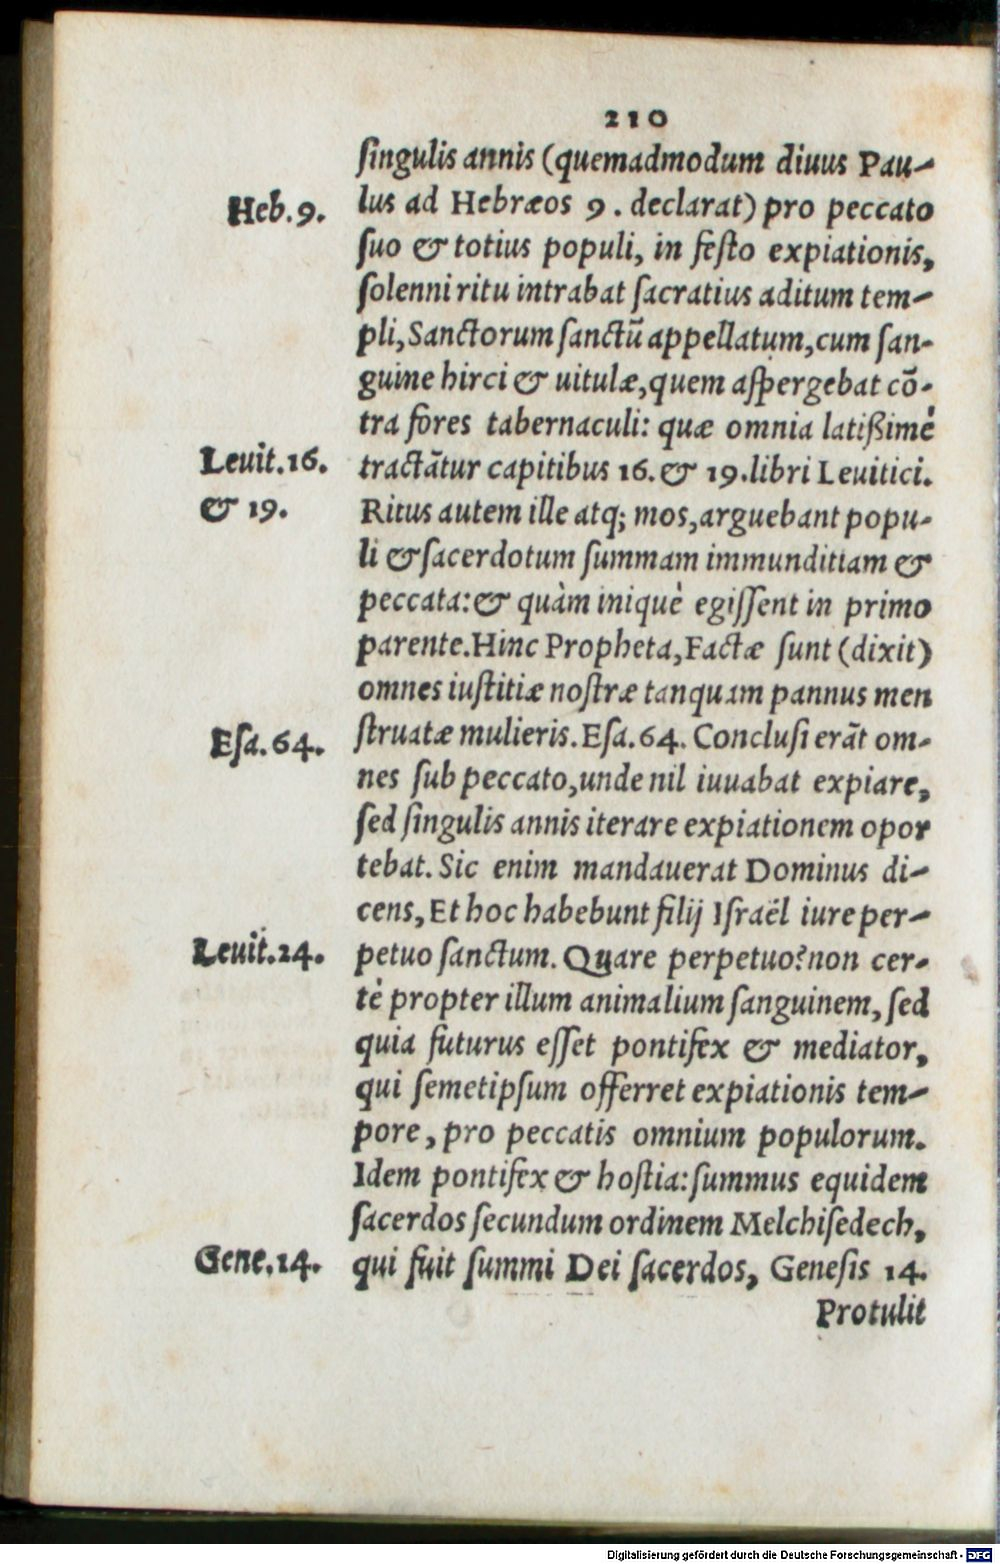 210
ſingulis annis (quemadmodum diuus Pau-
Heb.9.
lus ad Hebræos 9. declarat) pro peccato
ſuo & totius populi, in feſto expiationis,
ſolenni ritu intrabat ſacratius aditum tem-
pli, Sanctorum ſanctū appellatum, cum ſan-
guine hirci & uitulæ, quem aſpergebat cō-
tra fores tabernaculi: quæ omnia latißimè
Leuit.16.
tractātur capitibus 16. & 19. libri Leuitici.
& 19.
Ritus autem ille atq; mos, arguebant popu-
li & ſacerdotum ſummam immunditiam &
peccata: & quàm iniquè egiſſent in primo
parente. Hinc Propheta, Factæ ſunt (dixit)
omnes iuſtitiæ noſtræ tanquam pannus men
Eſa.64.
ſtruatæ mulieris. Eſa.64. Concluſi erāt om-
nes ſub peccato, unde nil iuuabat expiare,
ſed ſingulis annis iterare expiationem opor
tebat. Sic enim mandauerat Dominus di-
cens, Et hoc habebunt filij Iſraël iure per-
Leuit.24.
petuo ſanctum. Quare perpetuo? non cer-
tè propter illum animalium ſanguinem, ſed
quia futurus eſſet pontifex & mediator,
qui ſemetipſum offerret expiationis tem-
pore, pro peccatis omnium populorum.
Idem pontifex & hoſtia: ſummus equidem
ſacerdos ſecundum ordinem Melchiſedech,
Gene.14.
qui fuit ſummi Dei ſacerdos, Geneſis 14.
Protulit
Digitalisierung gefördert durch die Deutsche Forschungsgemeinschaft - DFG